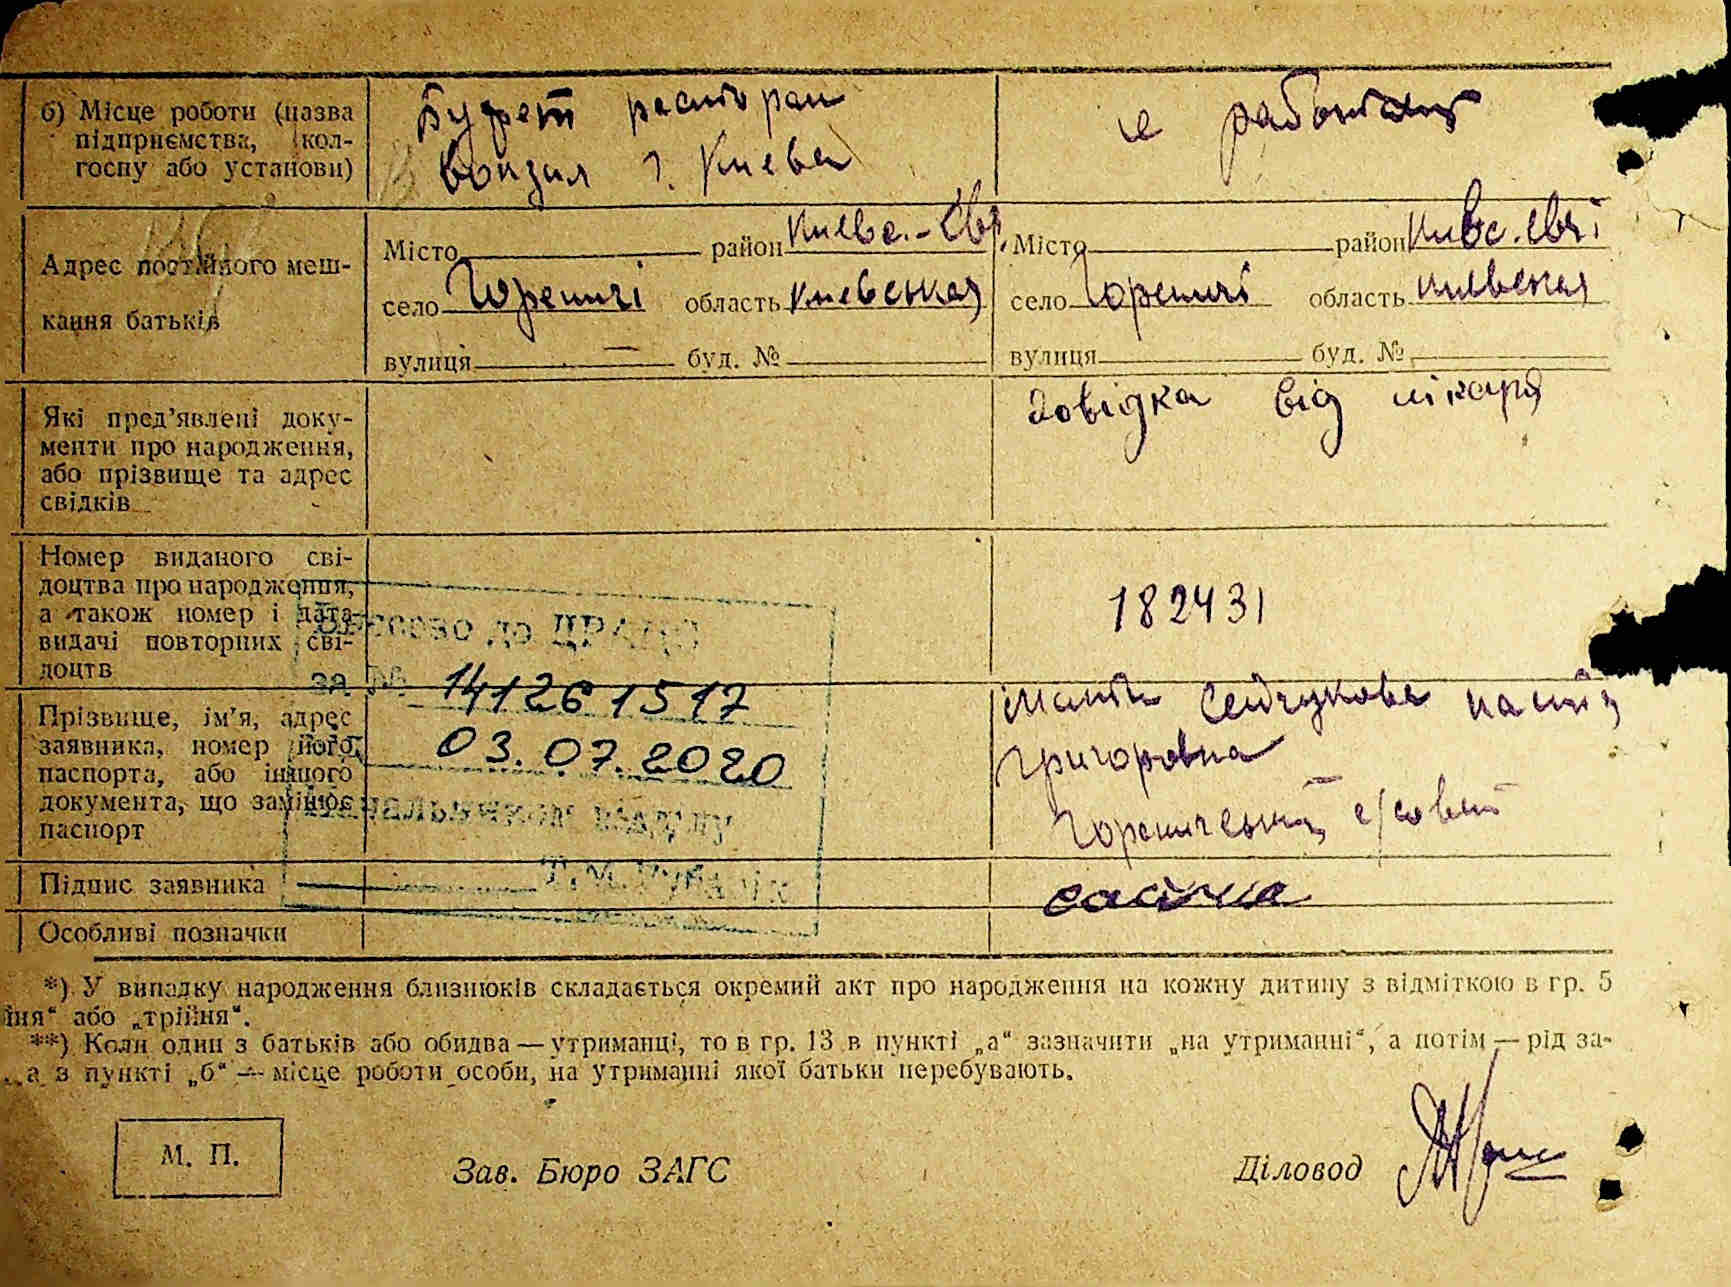 б) Місце роботи (назва
підприємства, кол-
госпу або установи)
Буфет ресторан
вокзал г. Киева
не работает
Адрес постійного меш-
кання батьків
Місто район Киево.-Свят.
село Гореничі область Киевская
вулиця — буд. №
Місто район Киево.Свят
село Гореничі область Киевская
вулиця буд. №
Які пред’явлені доку-
менти про народження,
або прізвище та адрес
свідків
довідка від лікаря
Номер виданого сві-
доцтва про народження,
а також номер і дата
видачі повторних сві-
доцтв
182431
Внесено до ДРАЦС
за № 14126 1517
03.07.2020
Начальником відділу
Прізвище, ім’я, адрес
заявника, номер його
паспорта, або іншого
документа, що замінює
паспорт
Мати
Григоровна
с/совет
Підпис заявника
Особливі позначки
*) У випадку народження близнюків складається окремий акт про народження на кожну дитину з відміткою в гр. 5
йня“ або „трійня“.
**) Коли один з батьків або обидва — утриманці, то в гр. 13 в пункті „а“ зазначити „на утриманні“, а потім — рід за-
а з пункті „б“ — місце роботи особи, на утриманні якої батьки перебувають.
М. П.
Зав. Бюро ЗАГС
Діловод